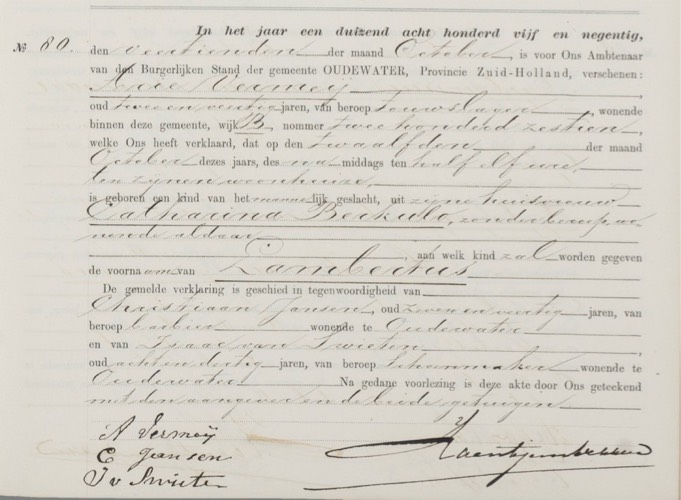 In het jaar een duizend acht honderd vijf en negentig,
No 80. den veertienden der maand October, is voor Ons Ambtenaar
van den Burgerlijken Stand der gemeente OUDEWATER, Provincie Zuid-Holland, verschenen:
Arie Vermeij
oud twee en veertig jaren, van beroep touwslager, wonende
binnen deze gemeente, wijk B, nommer twee honderd zestien,
welke Ons heeft verklaard, dat op den twaalfden der maand
October dezes jaars, des na middags ten half elf ure,
ten zijnen woonhuize,
is geboren een kind van het mannelijk geslacht, uit zijne huisvrouw
Catharina Berkulo, zonder beroep, wo-
nende aldaar
, aan welk kind zal worden gegeven
de voornaam van Lambertus
De gemelde verklaring is geschied in tegenwoordigheid van
Christiaan Jansen, oud zeven en veertig jaren, van
beroep barbier wonende te Oudewater
en van Isaac van Swieten
oud acht en dertig jaren, van beroep schoenmaker wonende te
Oudewater. Na gedane voorlezing is deze akte door Ons geteekend
met den aangever en de beide getuigen
A Vermeij
C Jansen
I v Swieten